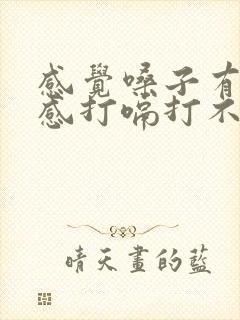 感覺嗓子有
感打嗝打不
晴天畫的藍